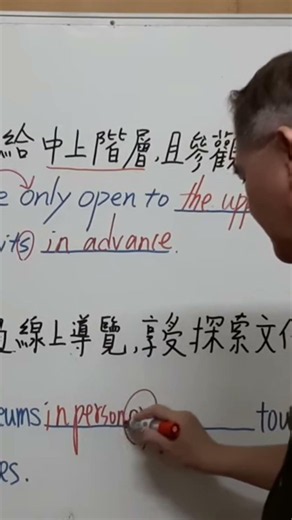 給中上階層,且參觀
only open to the upp
its in advance.
線上導覽,享受探索文
eums in person tou
es.